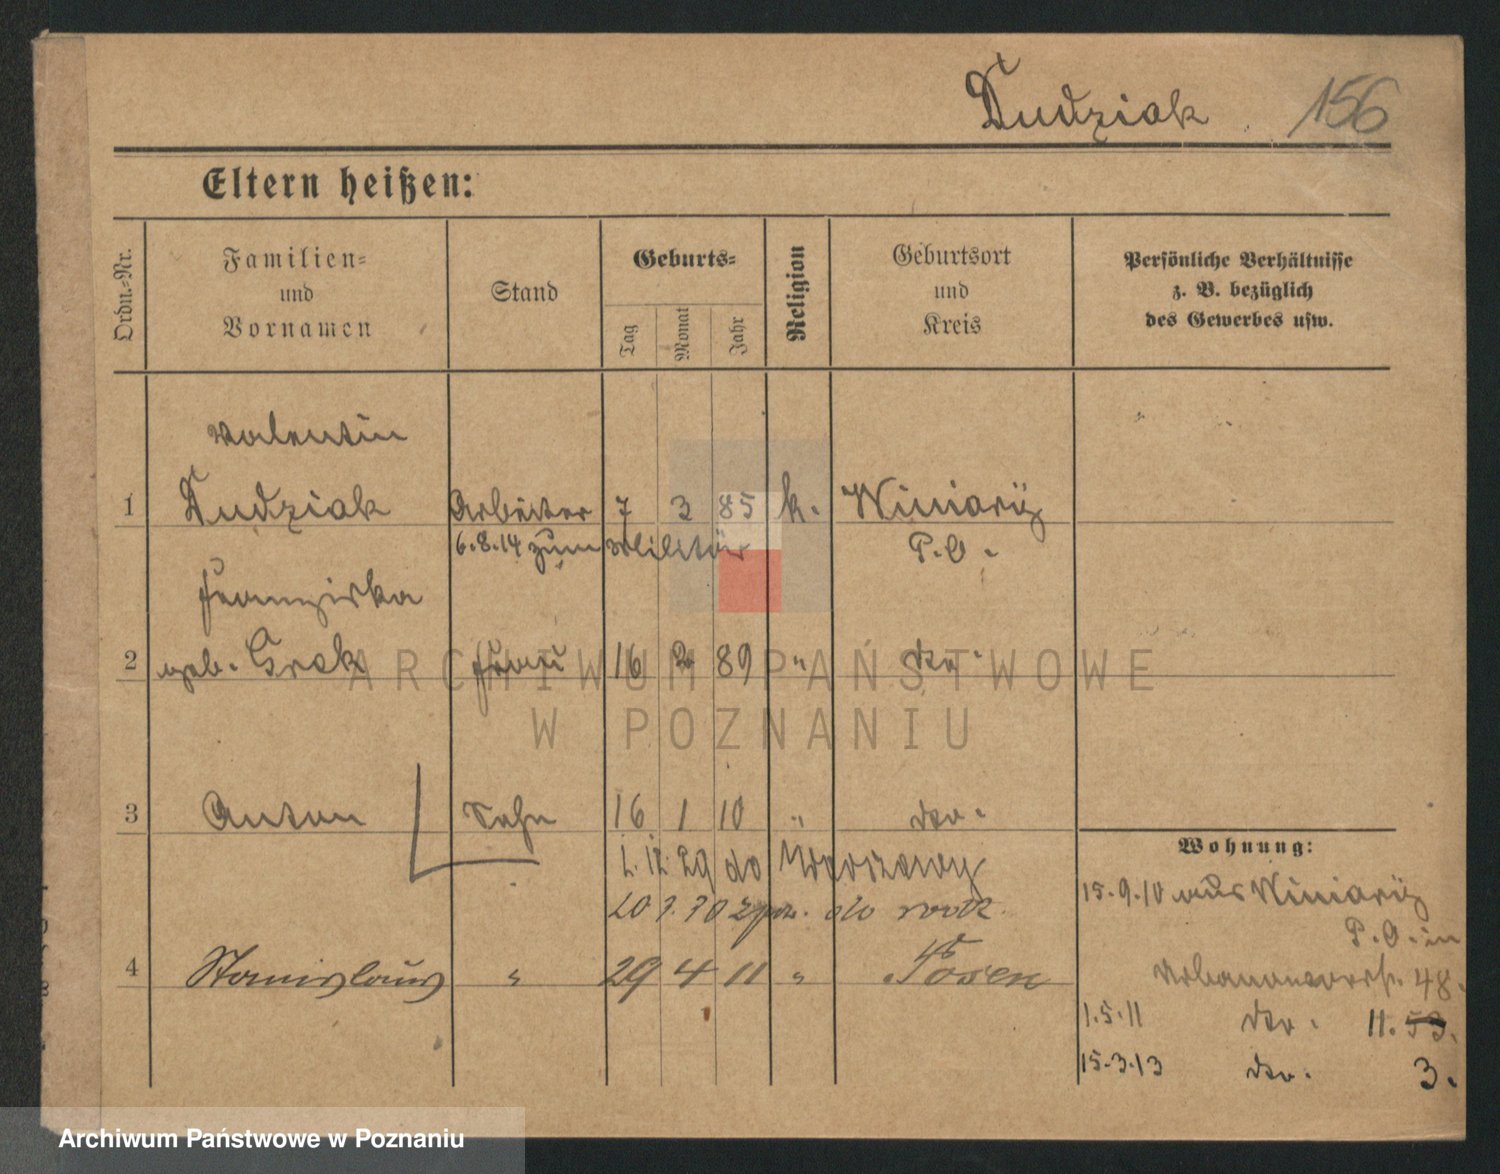 Dudziak 156
Eltern heißen:
Ordn.-Nr.
Familien- und Vornamen
Stand
Geburts-
Tag
Monat
Jahr
Religion
Geburtsort und Kreis
Persönliche Verhältnisse
z. B. bezüglich
des Gewerbes usw.
Valentin
1 Dudziak Arbeiter 7 3 85 k. Winiary
6.8.14 zum Militär P.O.
Franziska
2 geb. Grek Frau 16 2 89 " dto.
ARCHIWUM PAŃSTWOWE
W POZNANIU
3 Anton Sohn 16 1 10 " dto.
1.12.29 do Warszawy
Wohnung:
15.9.10 aus Winiary
20 30 do
P.O. in
4 Stanislaus " 29 4 11 " Posen
48.
1.5.11 dto. 11. 53.
15.3.13 dto. 3.
Archiwum Państwowe w Poznaniu